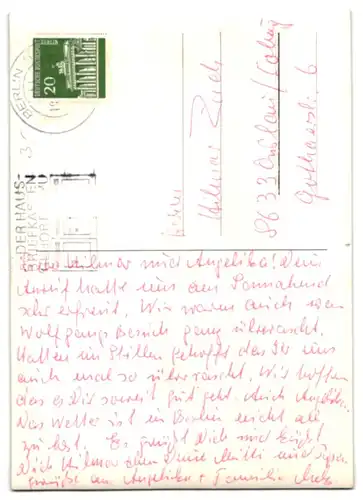 BERLIN
DEUTSCHE BUNDESPOST BERLIN
20
DER HAUS-
BRIEFKASTEN
GEHÖRT ZU
Herrn
Hilmar
8633
Gothaerstr. 6
Lieber Hilmar und Angelika! Dein
Anruf hatte uns am Sonnabend
sehr erfreut. Wir waren auch von
Wolfgangs Besuch ganz überrascht.
Hatten im Stillen gehofft das Ihr uns
auch mal so überrascht. Wir hoffen
das es Dir soweit gut geht. Auch Angelika.
Das Wetter ist in Berlin nicht all
zu best. Es grüßt Dich und küßt
Dich Hilmar Deine Mutti und
Grüße an Angelika + Familie